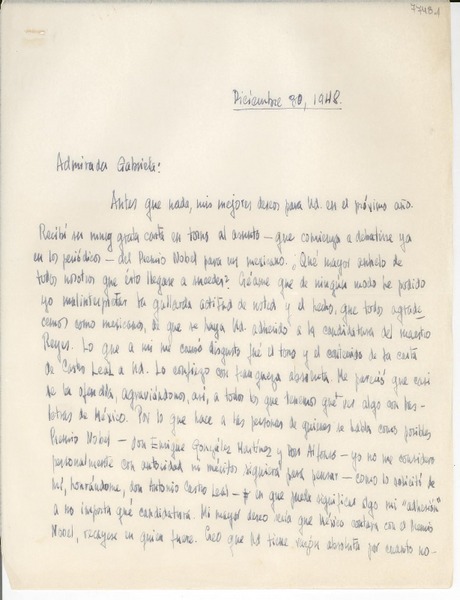 7743.1
Diciembre 20, 1948.
Admirada Gabriela:
Antes que nada, mis mejores deseos para Ud. en el próximo año.
Recibí su muy grata carta en torno al asunto — que comienza a debatirse ya
en los periódicos — del Premio Nobel para un mexicano. ¿Qué mayor anhelo de
todos nosotros que ésto llegase a suceder? Créame que de ningún modo he podido
yo malinterpretar la gallarda actitud de usted y el hecho, que todos agrade-
cemos como mexicanos, de que se haya Ud. adherido a la candidatura del maestro
Reyes. Lo que a mí me causó disgusto fué el tono y el contenido de la carta
de Castro Leal a Ud. Lo confieso con franqueza absoluta. Me pareció que casi
se la ofendía, agraviándonos, así, a todos los que tenemos qué ver algo con las
letras de México. Por lo que hace a las personas de quienes se habla como posibles
Premio Nobel — don Enrique González Martínez y Don Alfonso — yo no me considero
personalmente con autoridad ni méritos siquiera para pensar — como lo solicitó de
mí, honrándome, don Antonio Castro Leal — en que pueda significar algo mi "adhesión"
a no importa qué candidatura. Mi mayor deseo sería que México contara con el Premio
Nobel, recayese en quien fuere. Creo que Ud tiene razón absoluta por cuanto no-